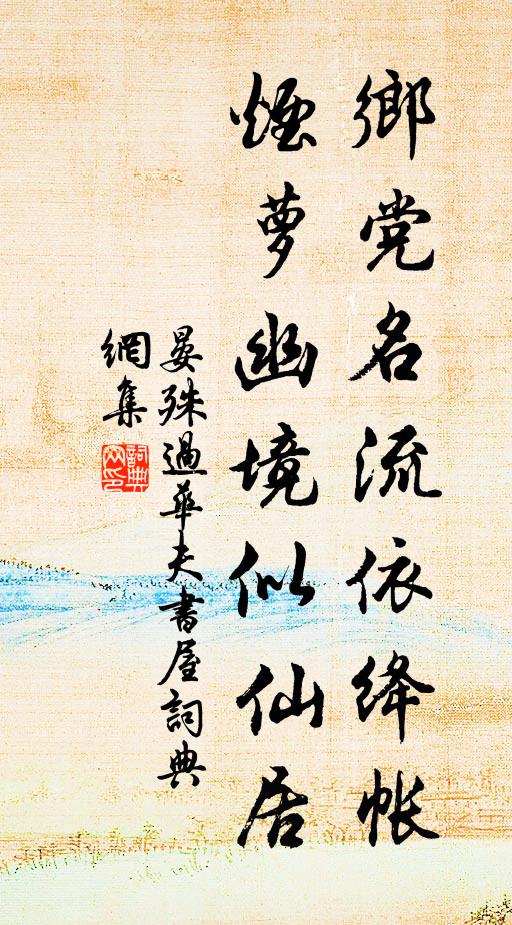 鄉党名流依绛帐
烟萝幽境似仙居
晏殊過華夫書屋詞典
網集
詞典
网印